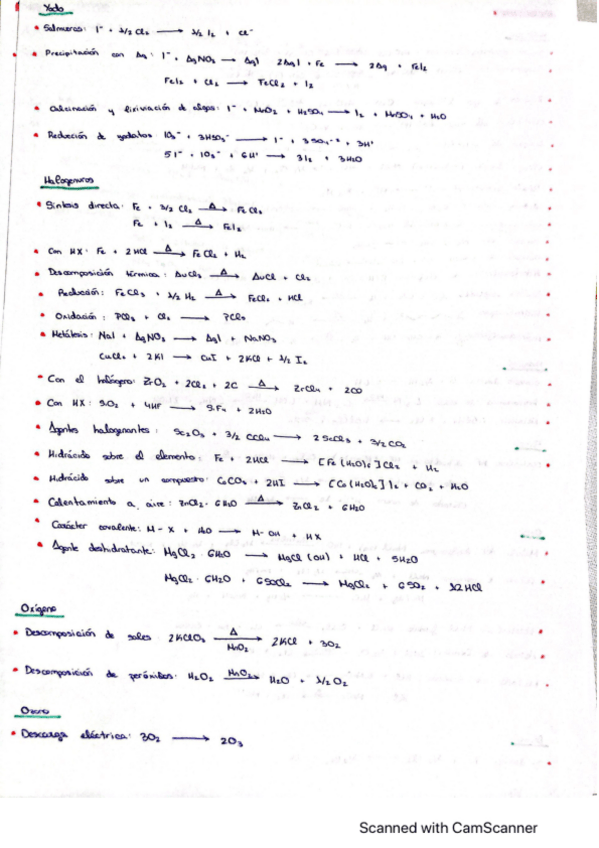 Yodo
• Salmueras: I⁻ + 1/2 Cl₂ ⟶ 1/2 I₂ + Cl⁻
• Precipitación con Ag: I⁻ + AgNO₃ ⟶ AgI 2AgI + Fe ⟶ 2Ag + FeI₂
FeI₂ + Cl₂ ⟶ FeCl₂ + I₂
• Calcinación y lixiviación de algas: I⁻ + MnO₂ + H₂SO₄ ⟶ I₂ + MnSO₄ + H₂O
• Reducción de yodatos: IO₃⁻ + 3HSO₃⁻ ⟶ I⁻ + 3SO₄⁻² + 3H⁺
5I⁻ + IO₃⁻ + 6H⁺ ⟶ 3I₂ + 3H₂O
Halogenuros
• Síntesis directa: Fe + 3/2 Cl₂ ⟶Δ FeCl₃
Fe + I₂ ⟶Δ FeI₂
• Con HX: Fe + 2HCl ⟶Δ FeCl₂ + H₂
• Descomposición térmica: AuCl₃ ⟶Δ AuCl + Cl₂
• Reducción: FeCl₃ + 1/2 H₂ ⟶Δ FeCl₂ + HCl
• Oxidación: PCl₃ + Cl₂ ⟶ PCl₅
• Metátesis: NaI + AgNO₃ ⟶ AgI + NaNO₃
CuCl₂ + 2KI ⟶ CuI + 2KCl + 1/2 I₂
• Con el halógeno: ZrO₂ + 2Cl₂ + 2C ⟶Δ ZrCl₄ + 2CO
• Con HX: SiO₂ + 4HF ⟶ SiF₄ + 2H₂O
• Agentes halogenantes: Sc₂O₃ + 3/2 CCl₄ ⟶ 2ScCl₃ + 3/2 CO₂
• Hidrácido sobre el elemento: Fe + 2HCl ⟶ [Fe(H₂O)₆]Cl₂ + H₂
• Hidrácido sobre un compuesto: CoCO₃ + 2HI ⟶ [Co(H₂O)₆]I₂ + CO₂ + H₂O
• Calentamiento a aire: ZnCl₂·6H₂O ⟶Δ ZnCl₂ + 6H₂O
• Carácter covalente: M-X + H₂O ⟶ M-OH + HX
• Agente deshidratante: MgCl₂·6H₂O ⟶ MgCl(OH) + HCl + 5H₂O
MgCl₂·6H₂O + 6SOCl₂ ⟶ MgCl₂ + 6SO₂ + 12HCl
Oxígeno
• Descomposición de sales: 2KClO₃ ⟶Δ MnO₂ 2KCl + 3O₂
• Descomposición de peróxidos: H₂O₂ ⟶MnO₂ H₂O + 1/2 O₂
Ozono
• Descarga eléctrica: 3O₂ ⟶ 2O₃
Scanned with CamScanner